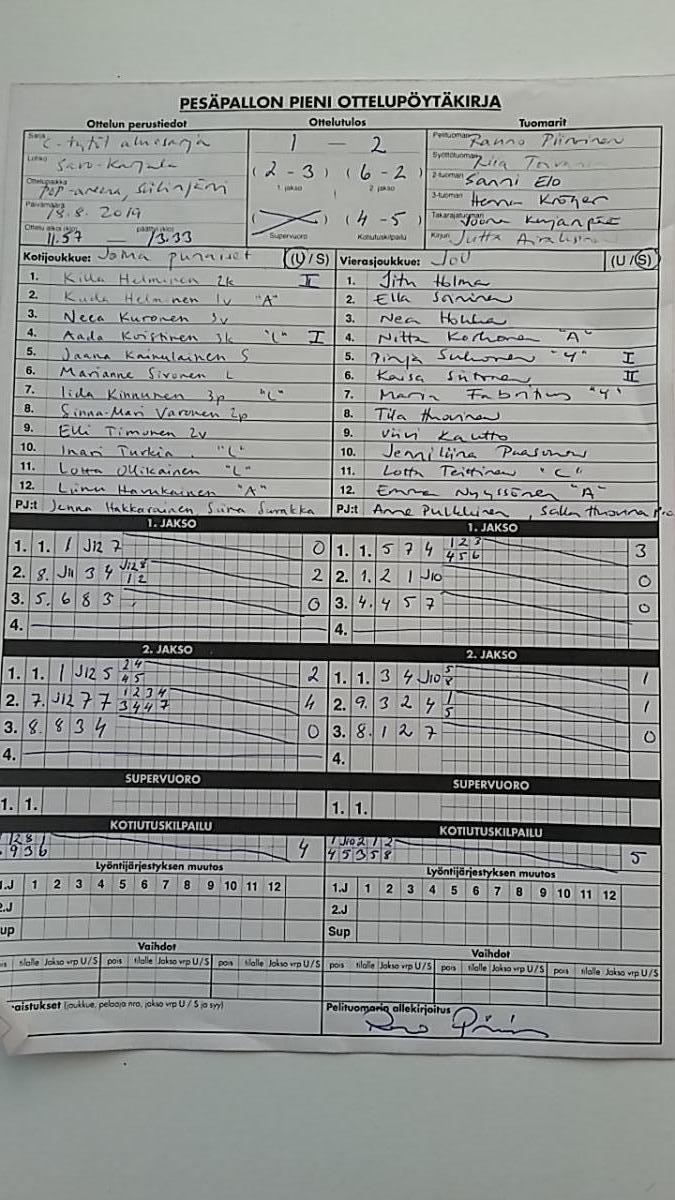 PESÄPALLON PIENI OTTELUPÖYTÄKIRJA
Ottelun perustiedot
Sarja C-tytöt aluesarja
Lohko Savo-Karjala
Ottelupaikka POP-areena, Siilinjärvi
Päivämäärä 18.8. 2019
Ottelu alkoi (klo) 11.57 — päättyi (klo) 13.33
Ottelutulos
1 — 2
(2 - 3) (6 - 2)
1. jakso 2. jakso
( ) (4 - 5)
Supervuoro Kotiutuskilpailu
Tuomarit
Pelituomari
Syöttötuomari
2-tuomari Sanni Elo
3-tuomari Henna Kröger
Takarajatuomari
Kirjuri Jutta
Kotijoukkue: JoMa punaiset (U/S)
1. Helminen 2k II
2. Helminen 1v "A"
3. Neea Kuronen 3v
4. Aada Koistinen 3k "L" I
5. Jaana Kainulainen S
6. Marianne Sivonen L
7. Iida Kinnunen 3p "L"
8. Sinna-Mari Varonen 2p
9. Elli Timonen 2v
10. Inari Turkia "L"
11. Lotta Ollikainen "L"
12. Liinu Havukainen "A"
PJ:t Jenna Hakkarainen Siina Surakka
Vierasjoukkue: JoU (U/S)
1. Holma
2. Ella Soininen
3. Nea
4. Nitta Korhonen "A"
5. Pinja Suhonen "4" I
6. Kaisa II
7. Maria Fabritius "4"
8. Tiia Huovinen
9. Viivi Kautto
10. Jenniliina Paasonen
11. Lotta Teittinen "C"
12. Emma Nyyssönen "A"
PJ:t Anne Pulkkinen, Salla Huovinen
1. JAKSO
1. 1. 1 J12 7 0
2. 8. J11 3 4 J12 8 0 2
1 2
3. 5. 6 8 3 0
4.
1. JAKSO
1. 1. 5 7 4 1 2 3 3
4 5 6
2. 1. 2 1 J10 0
3. 4. 4 5 7 0
4.
2. JAKSO
1. 1. 1 J12 5 2 4 2
4 5
2. 7. J12 7 7 1 2 3 4 4
3 4 4 7
3. 8. 8 3 4 0
4.
2. JAKSO
1. 1. 3 4 J10 5 1
8
2. 9. 3 2 4 1 1
5
3. 8. 1 2 7 0
4.
SUPERVUORO
1. 1.
SUPERVUORO
1. 1.
KOTIUTUSKILPAILU
1 2 8 1 4
9 3 6
KOTIUTUSKILPAILU
1 J10 2 1 2 5
4 5 3 5 8
Lyöntijärjestyksen muutos
1.J 1 2 3 4 5 6 7 8 9 10 11 12
2.J
up
Lyöntijärjestyksen muutos
1.J 1 2 3 4 5 6 7 8 9 10 11 12
2.J
Sup
Vaihdot
is tilalle Jakso vrp U/S pois tilalle Jakso vrp U/S pois tilalle Jakso vrp U/S
Vaihdot
pois tilalle Jakso vrp U/S pois tilalle Jakso vrp U/S pois tilalle Jakso vrp U/S
aistukset (joukkue, pelaaja nro, jakso vrp U/S ja syy)
Pelituomarin allekirjoitus